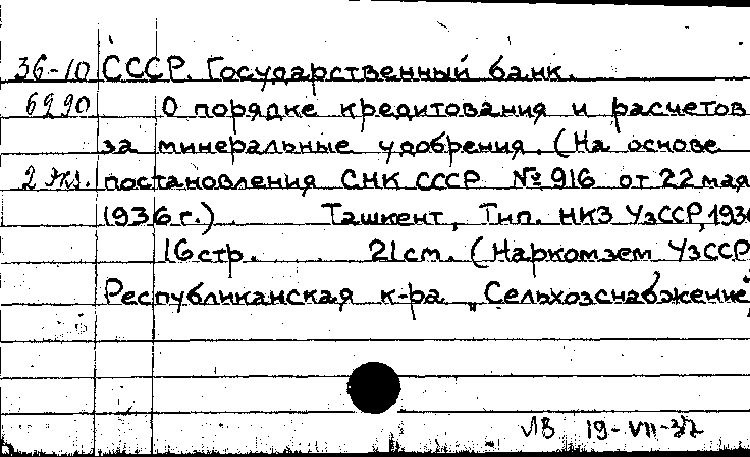 36-10 СССР. Государственный банк.
6290 О порядке кредитования и расчетов
за минеральные удобрения. (На основе
2 экз. постановления СНК СССР № 916 от 22 мая
1936 г.) Ташкент, Тип. НКЗ УзССР, 193
16 стр. 21 см. (Наркомзем УзССР
Республиканская к-ра „Сельхозснабжение"
19-VII-37